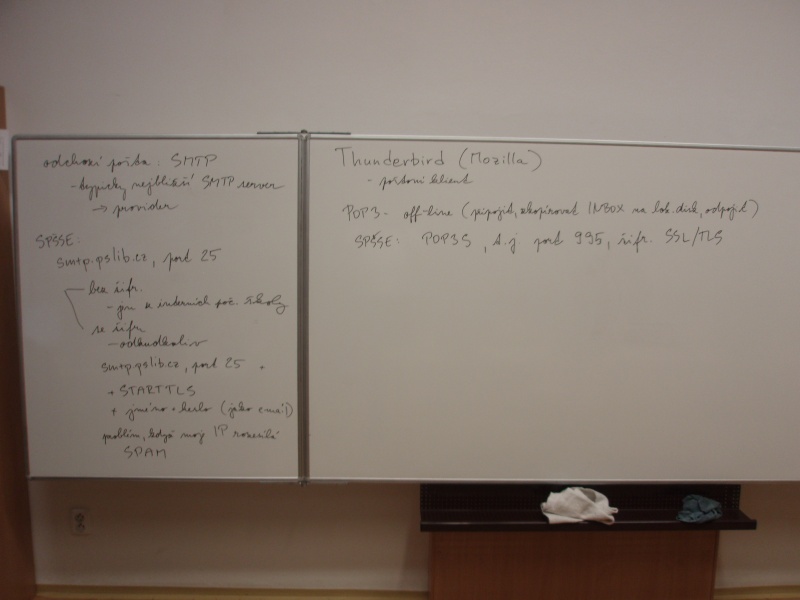 odchozí pošta: SMTP
- typicky nejbližší SMTP server
→ provider
SPŠSE:
smtp.pslib.cz, port 25
bez šifr.
- jen z interních poč. školy
se šifr.
- odkudkoliv
smtp.pslib.cz, port 25 +
+ STARTTLS
+ jméno + heslo (jako email)
problém, když moj IP rozesílá
SPAM
Thunderbird (Mozilla)
- poštovní klient
POP3 - off-line (připojit, zkopírovat INBOX na lok. disk, odpojit)
SPŠSE: POP3S, t.j port 995, šifr. SSL/TLS